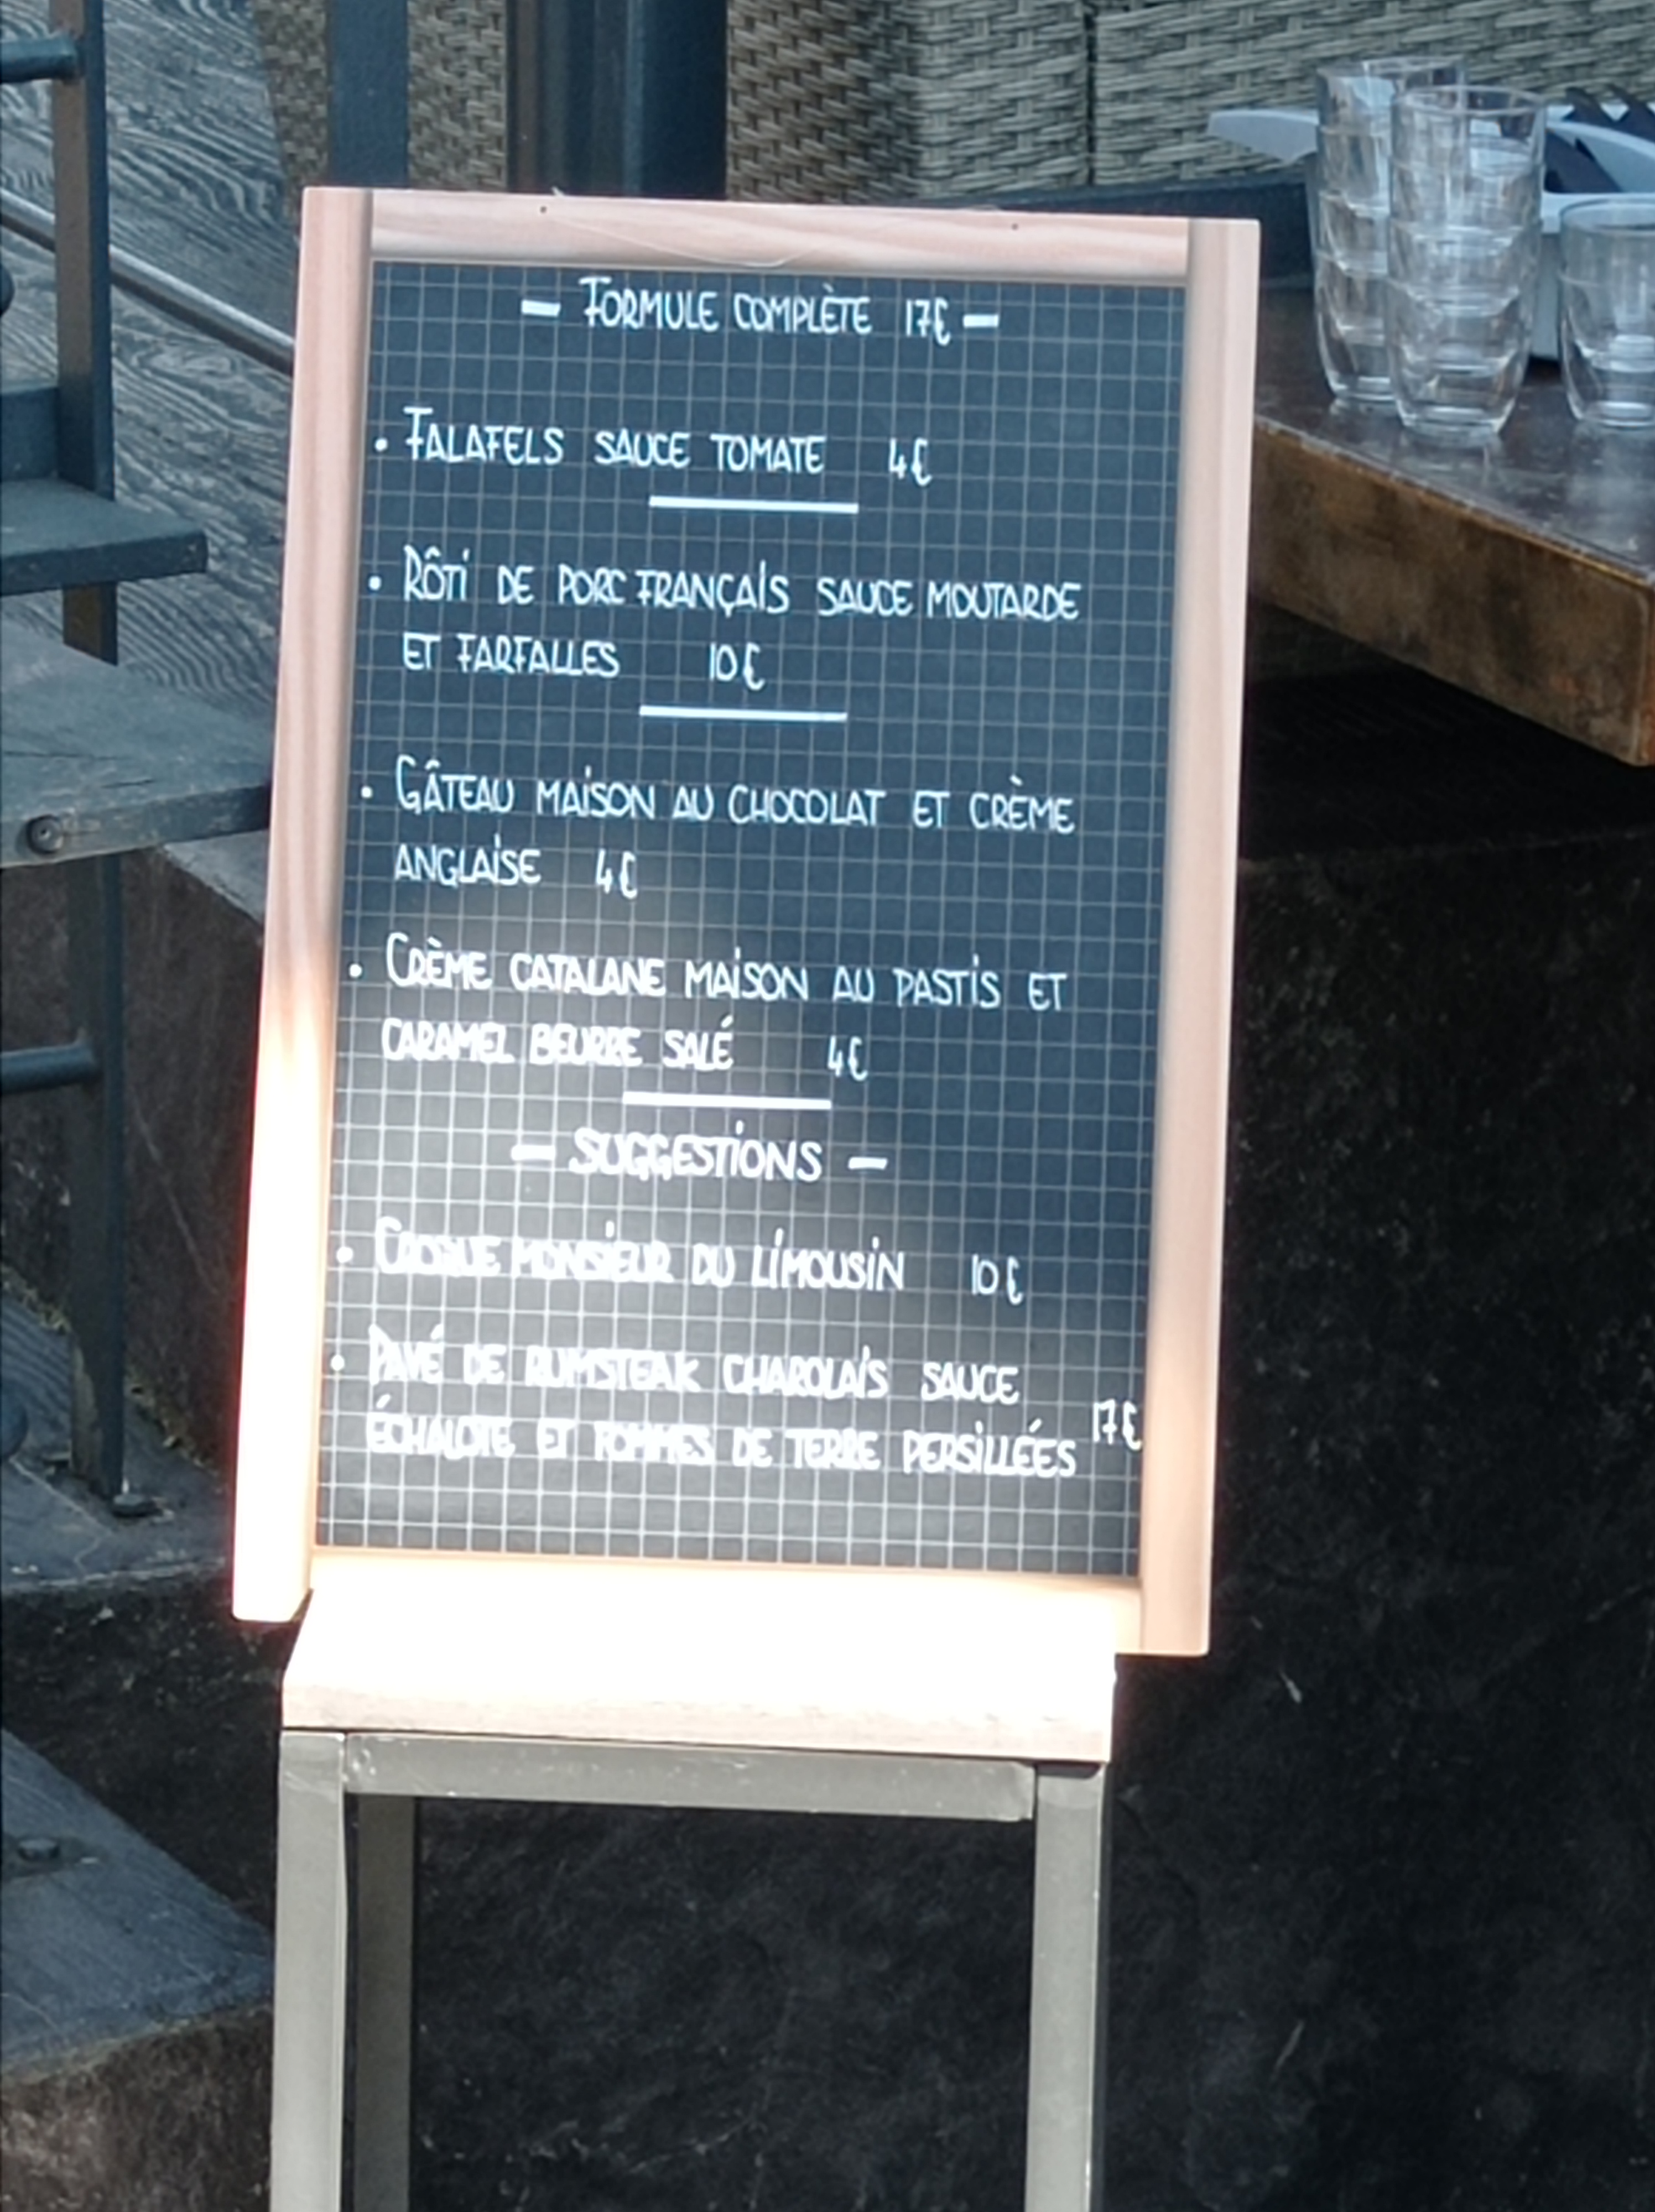 - FORMULE COMPLÈTE 17€ -
• FALAFELS SAUCE TOMATE 4€
• RÔTI DE PORC FRANÇAIS SAUCE MOUTARDE
ET FARFALLES 10€
• GÂTEAU MAISON AU CHOCOLAT ET CRÈME
ANGLAISE 4€
• CRÈME CATALANE MAISON AU PASTIS ET
CARAMEL BEURRE SALÉ 4€
- SUGGESTIONS -
• CROQUE MONSIEUR DU LIMOUSIN 10€
• PAVÉ DE RUMSTEAK CHAROLAIS SAUCE
ÉCHALOTE ET POMMES DE TERRE PERSILLÉES 17€